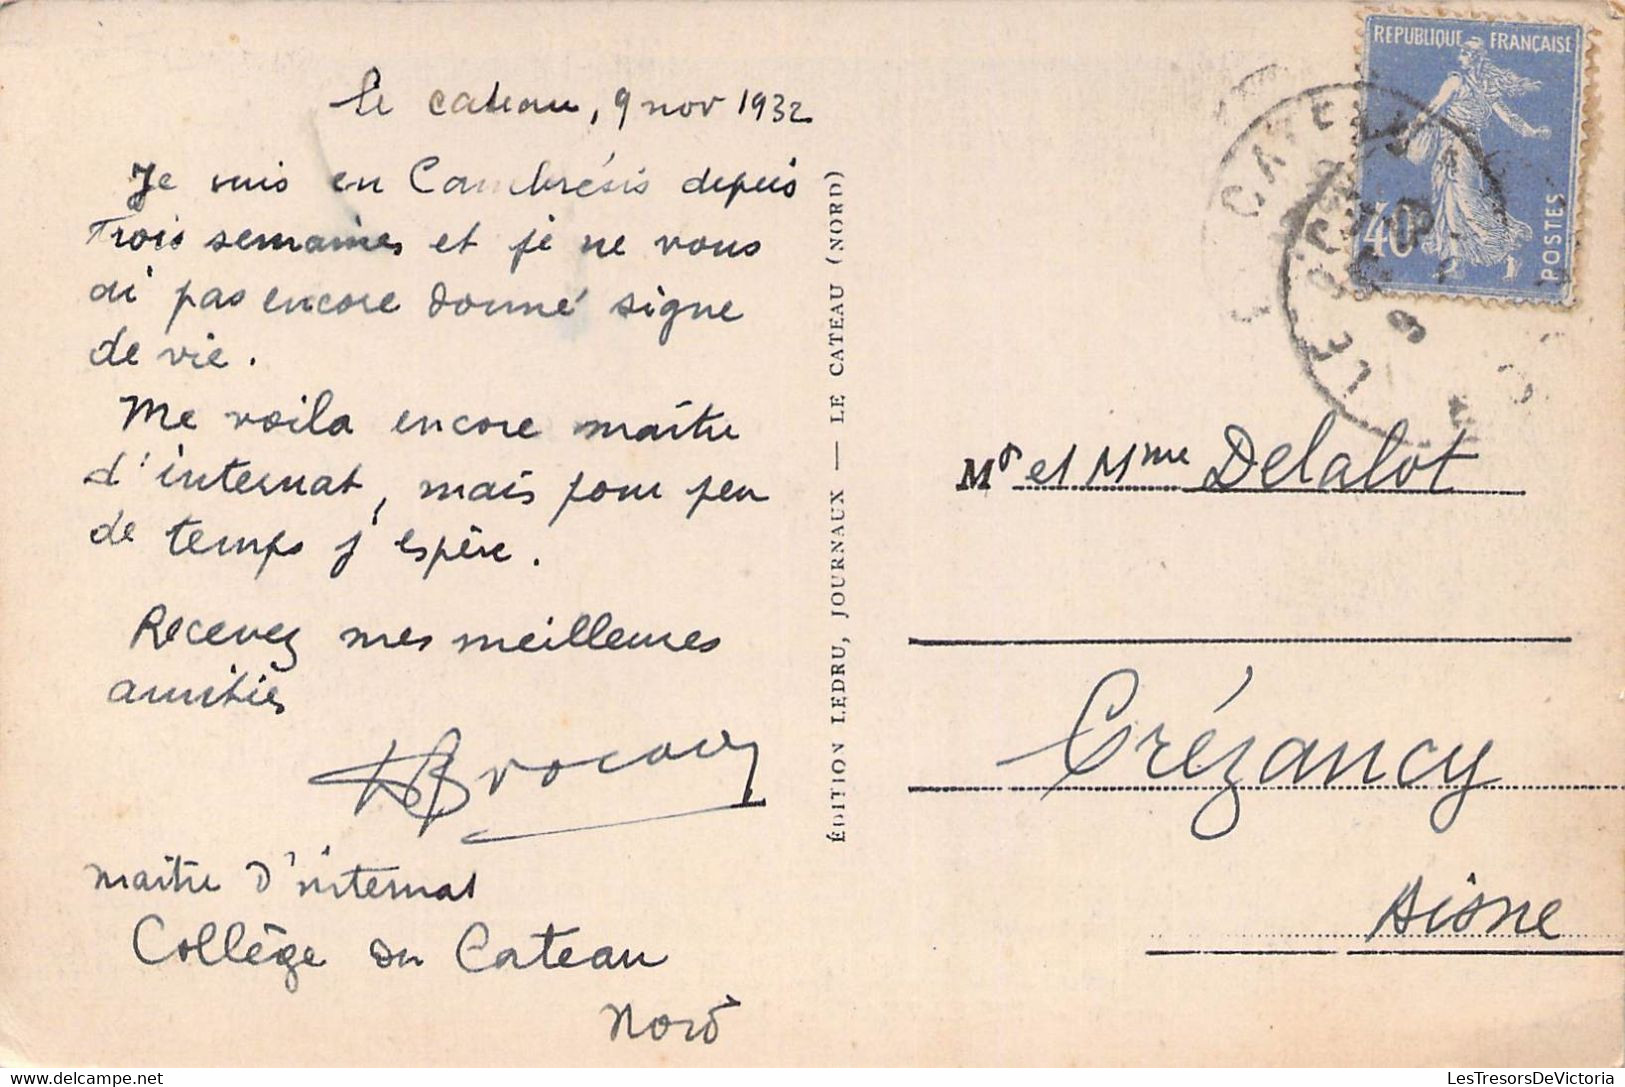 le Cateau, 9 nov 1932
Je suis en Cambrésis depuis
Trois semaines et je ne vous
ai pas encore donné signe
de vie.
Me voila encore maître
d'internat, mais pour peu
de temps j'espère.
Recevez mes meilleures
amitiés
maître d'internat
Collège du Cateau
Nord
ÉDITION LEDRU, JOURNAUX — LE CATEAU (NORD)
REPUBLIQUE FRANÇAISE
40
POSTES
LE CATEAU
Mr et Mme Delalot
Crézancy
Aisne
LesTresorsDeVictoria